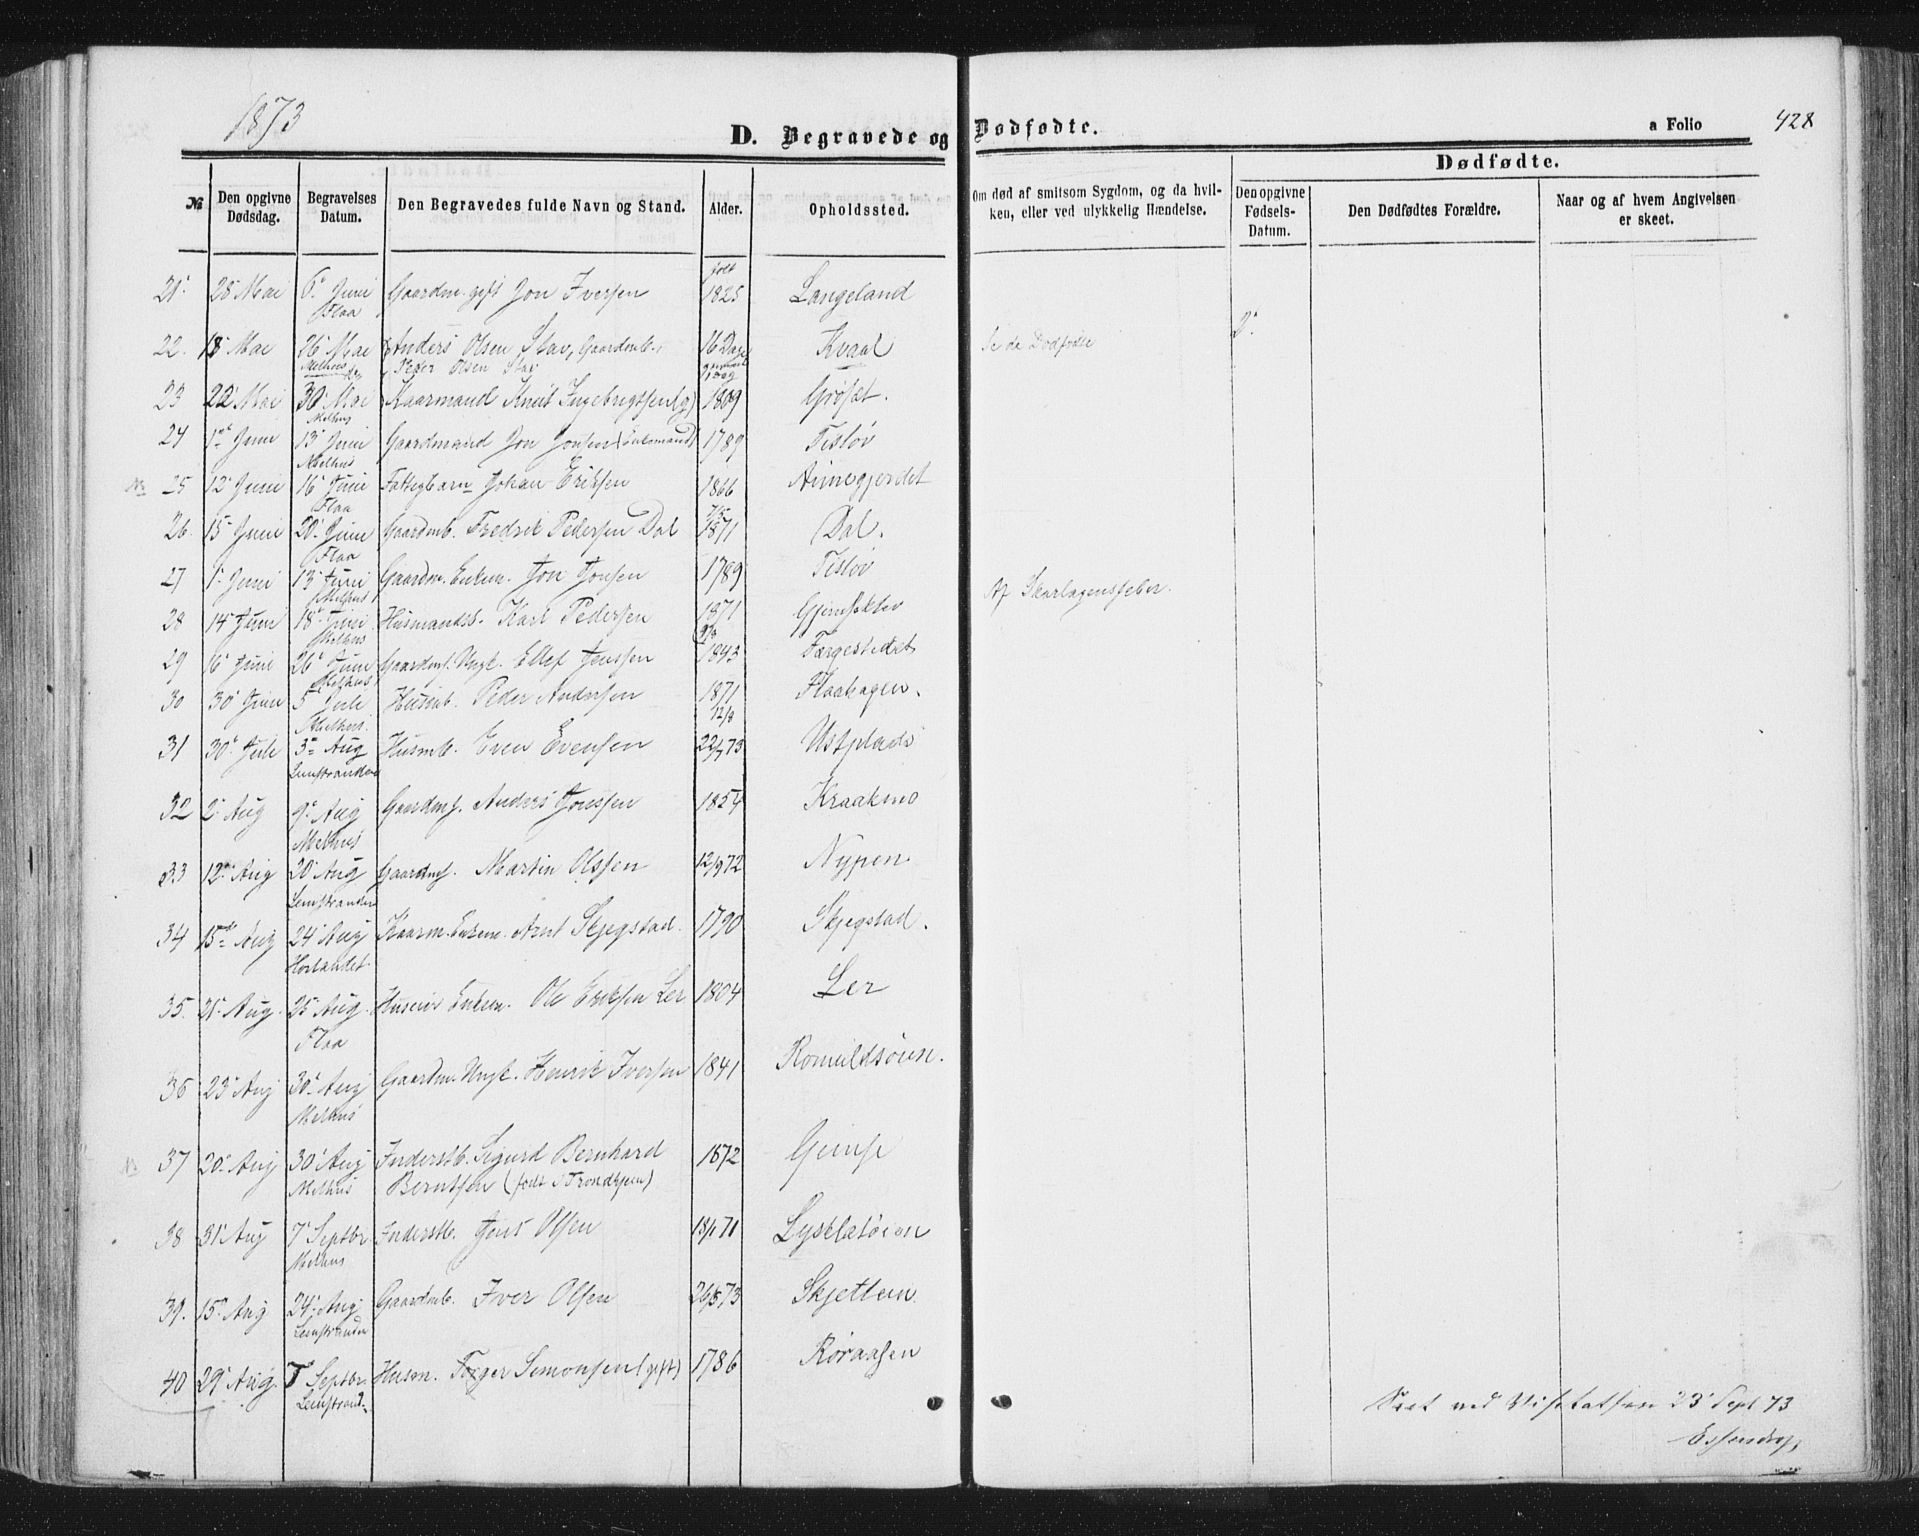 1873
D. Begravede og Dødfødte.
a Folio 428
Dødfødte.
№ Den opgivne Dødsdag. Begravelses Datum. Den Begravedes fulde Navn og Stand. Alder. Opholdssted. Om død af smitsom Sygdom, og da hvilken, eller ved ulykkelig Hændelse. Den opgivne Fødsels-Datum. Den Dødfødtes Forældre. Naar og af hvem Angivelsen er skeet.
født
21. 28 Mai 6 Juni Gaardm. gift Jon Iversen 1825 Langeland
Flaa
22. 18 Mai 26 Mai Anders Olsen Stav, Gaardmb. 16 Dage Kvaal Se de Dødfødte
Melhus Peder Olsen Stav
23 22 Mai 30 Mai Kaarmand Knut Ingebrigtsen (g) 1809 Grøset.
Melhus
24 1 Juni 13 Juni Gaardmand Jon Jonsen (Enkemand) 1789 Tisløv
Melhus
25 12 Juni 16 Juni Fattigbarn Johan Eriksen 1866
Flaa
26. 15 Juni 20 Juni Gaardmb. Fredrik Pedersen Dal 1871 Dal.
Flaa
27 1 Juni 13 Juni Gaardm. Enkem. Jon Jonsen 1789 Tisløv
Melhus
28 14 Juni 18 Juni Husmandss. Karl Pedersen 1871 Af Skarlagensfeber.
Melhus
29 16 Juni 26 Juni Gaardms. Ungk. Ellef Jenssen 1843 Færgestedet
Melhus
30 30 Juni 5 Juli Husmb. Peder Andersen 1871 Flaahagen.
Melhus. 12/9
31 30 Juli 3 Aug Husmb. Even Evensen 22/7 73 Ustplads
Leinstranden
32 2 Aug 9 Aug Gaardms. Anders Jonssen 1854 Kraakmo
Melhus
33 12 Aug 20 Aug Gaardms. Martin Olsen 12/9 72 Nypen
Leinstranden
34 15 Aug 24 Aug Kaarm. Enkem. Arnt Skjegstad. 1790 Skjegstad.
Hørlandet
35. 21 Aug. 25 Aug. Enkem. Ole Eriksen Ler 1804 Ler
Flaa
36 23 Aug 30 Aug Gaardm. Ungk. Henrik Iversen 1841
Melhus
37 20 Aug 30 Aug Inderstb. Sigurd Bernhard 1872 Gimse
Melhus Berntsen (født i Trondhjem)
38 31 Aug 7 Septbr Inderstb. Jens Olsen 71
Melhus
39. 15 Aug 24 Aug Gaardmb. Iver Olsen 73 Skjetlein
Leinstranden
40 29 Aug. 7 Septbr. Husm. Torger Simonsen (gift) 1786 Røraasen
Leinstrand.
Seet ved Visitatsen 23 Sept 73
Essendrop